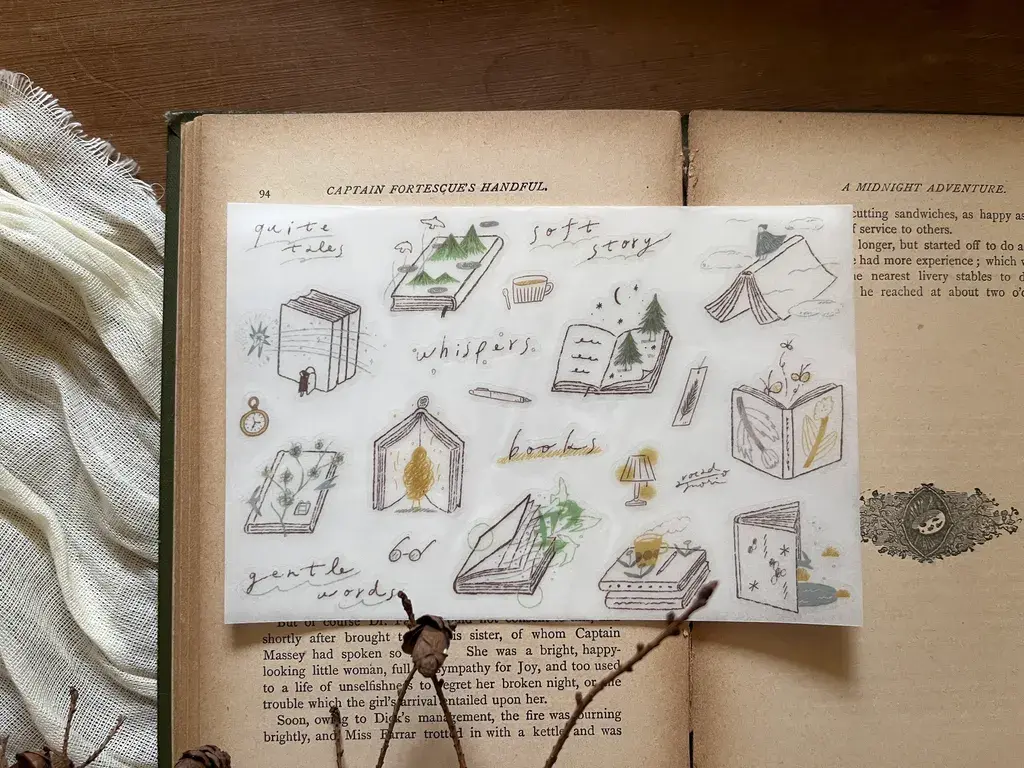 94
CAPTAIN FORTESCUE'S HANDFUL.
A MIDNIGHT ADVENTURE.
quite
tales
soft
story
whispers
books
gentle
words
cutting sandwiches, as happy as
service to others.
longer, but started off to do a
had more experience; which
nearest livery stables to
he reached at about two
But of course Dr.
shortly after brought his sister, of whom Captain
Massey had spoken so She was a bright, happy-
looking little woman, full sympathy for Joy, and too used
to a life of unselfishness to regret her broken night, or the
trouble which the girl's arrival entailed upon her.
Soon, owing to Dick's management, the fire was burning
brightly, and Miss Farrar trotted in with a kettle and was